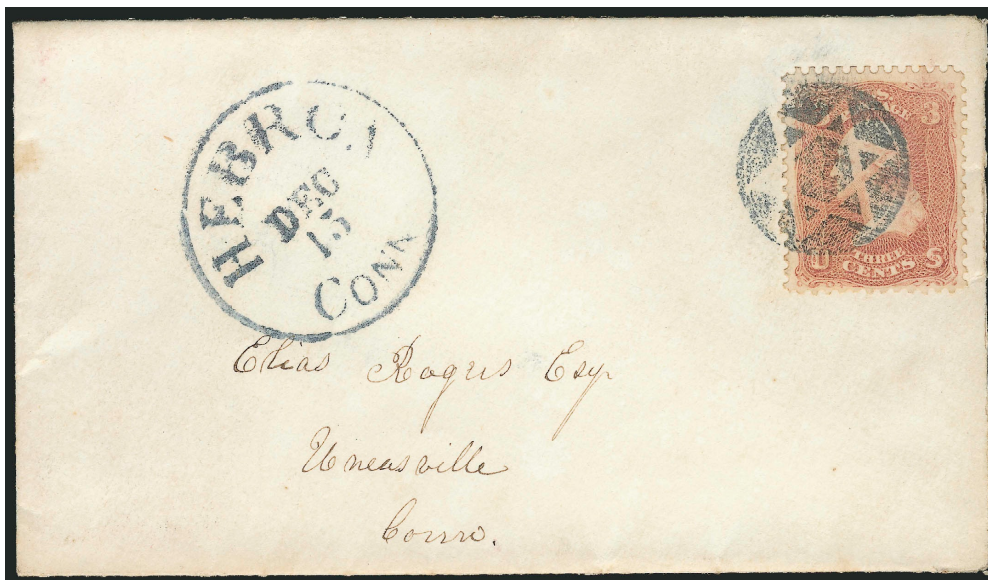 HEBRON
DEC
15
CONN
3
U THREE CENTS S
Elias Rogers Esq
Uncasville
Conn.